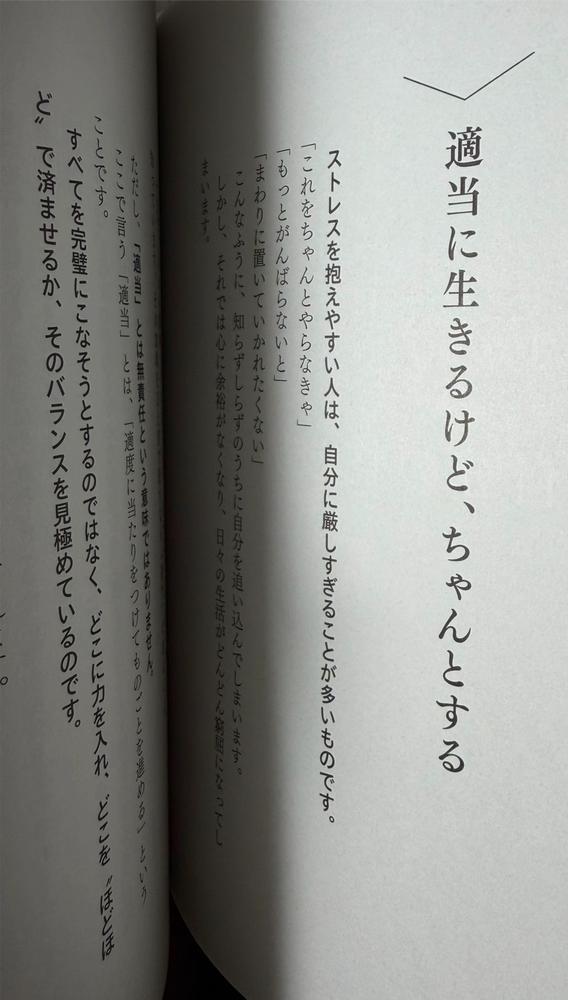 適当に生きるけど、ちゃんとする
ストレスを抱えやすい人は、自分に厳しすぎることが多いものです。
「これをちゃんとやらなきゃ」
「もっとがんばらないと」
「まわりに置いていかれたくない」
こんなふうに、知らずしらずのうちに自分を追い込んでしまいます。
しかし、それでは心に余裕がなくなり、日々の生活がどんどん窮屈になってし
まいます。
ただし、「適当」とは無責任という意味ではありません。
ここで言う「適当」とは、「適度に当たりをつけてものごとを進める」という
ことです。
すべてを完璧にこなそうとするのではなく、どこに力を入れ、どこを〝ほどほ
ど〟で済ませるか、そのバランスを見極めているのです。